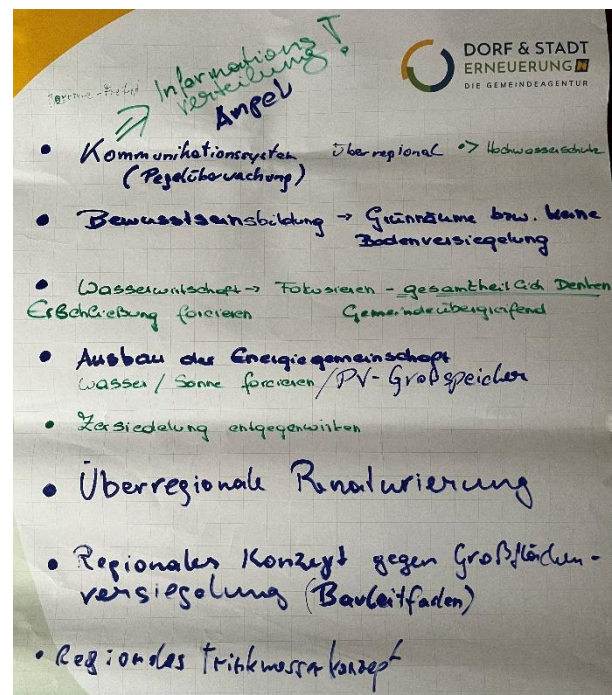 DORF & STADT
ERNEUERUNG N
DIE GEMEINDEAGENTUR
Informations
verteilung!
Angel
• Kommunikationssystem überregional -> Hochwasserschutz
(Pegelüberwachung)
• Bewusstseinsbildung → Grünräume bzw. keine
Bodenversiegelung
• Wasserwirtschaft → Fokusieren - gesamtheitlich Denken
Erschließung forcieren Gemeindeübergreifend
• Ausbau der Energiegemeinschaft
Wasser / Sonne forcieren / PV-Großspeicher
• Zersiedelung entgegenwirken
• Überregionale Renaturierung
• Regionales Konzept gegen Großflächen-
versiegelung (Bauleitfaden)
• Regionales Trinkwasserkonzept